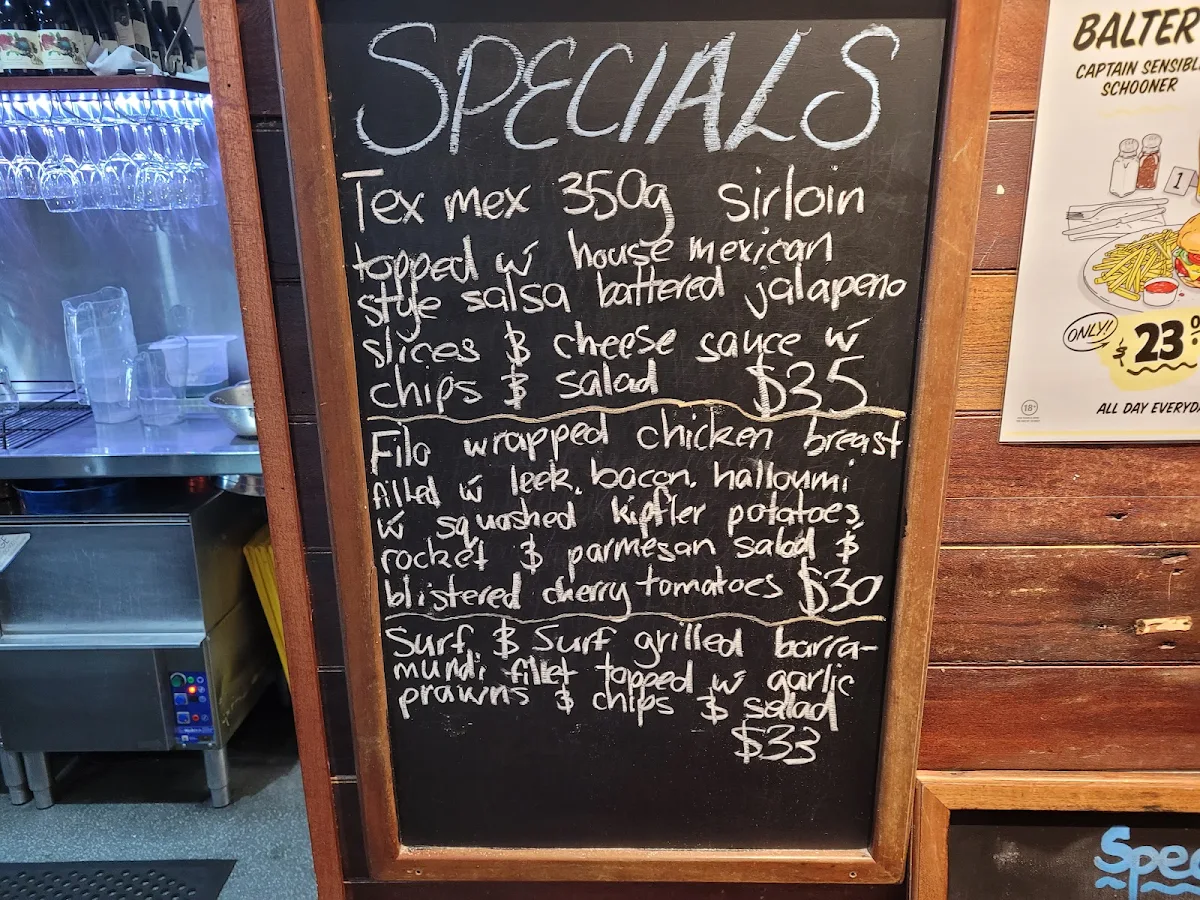 SPECIALS
Tex mex 350g sirloin
topped w house mexican
style salsa battered jalapeno
slices & cheese sauce w
chips & salad $35
Filo wrapped chicken breast
filled w leek, bacon, halloumi
w squashed kipfler potatoes,
rocket & parmesan salad &
blistered cherry tomatoes $30
Surf & Surf grilled barra-
mundi fillet topped w garlic
prawns & chips & salad
$33
BALTER
CAPTAIN SENSIBL
SCHOONER
1
ONLY!
$23
ALL DAY EVERYD
18+
Spec